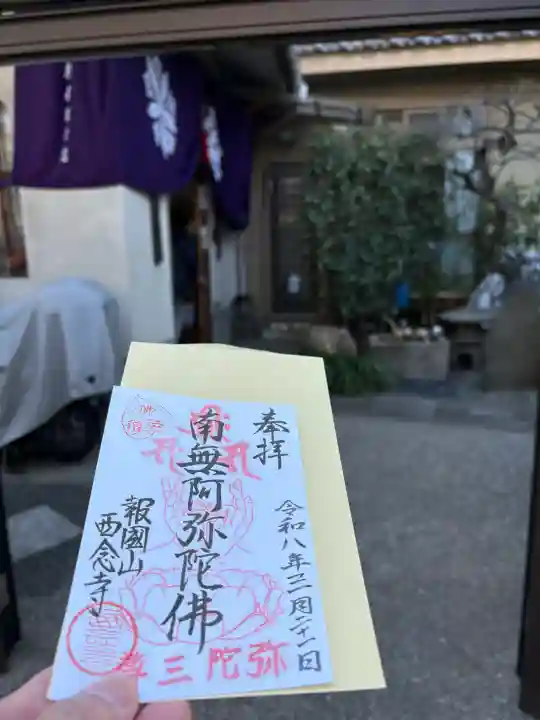 奉拝
令和八年三月二十一日
南無阿弥陀佛
報國山
西念寺
弥陀三尊